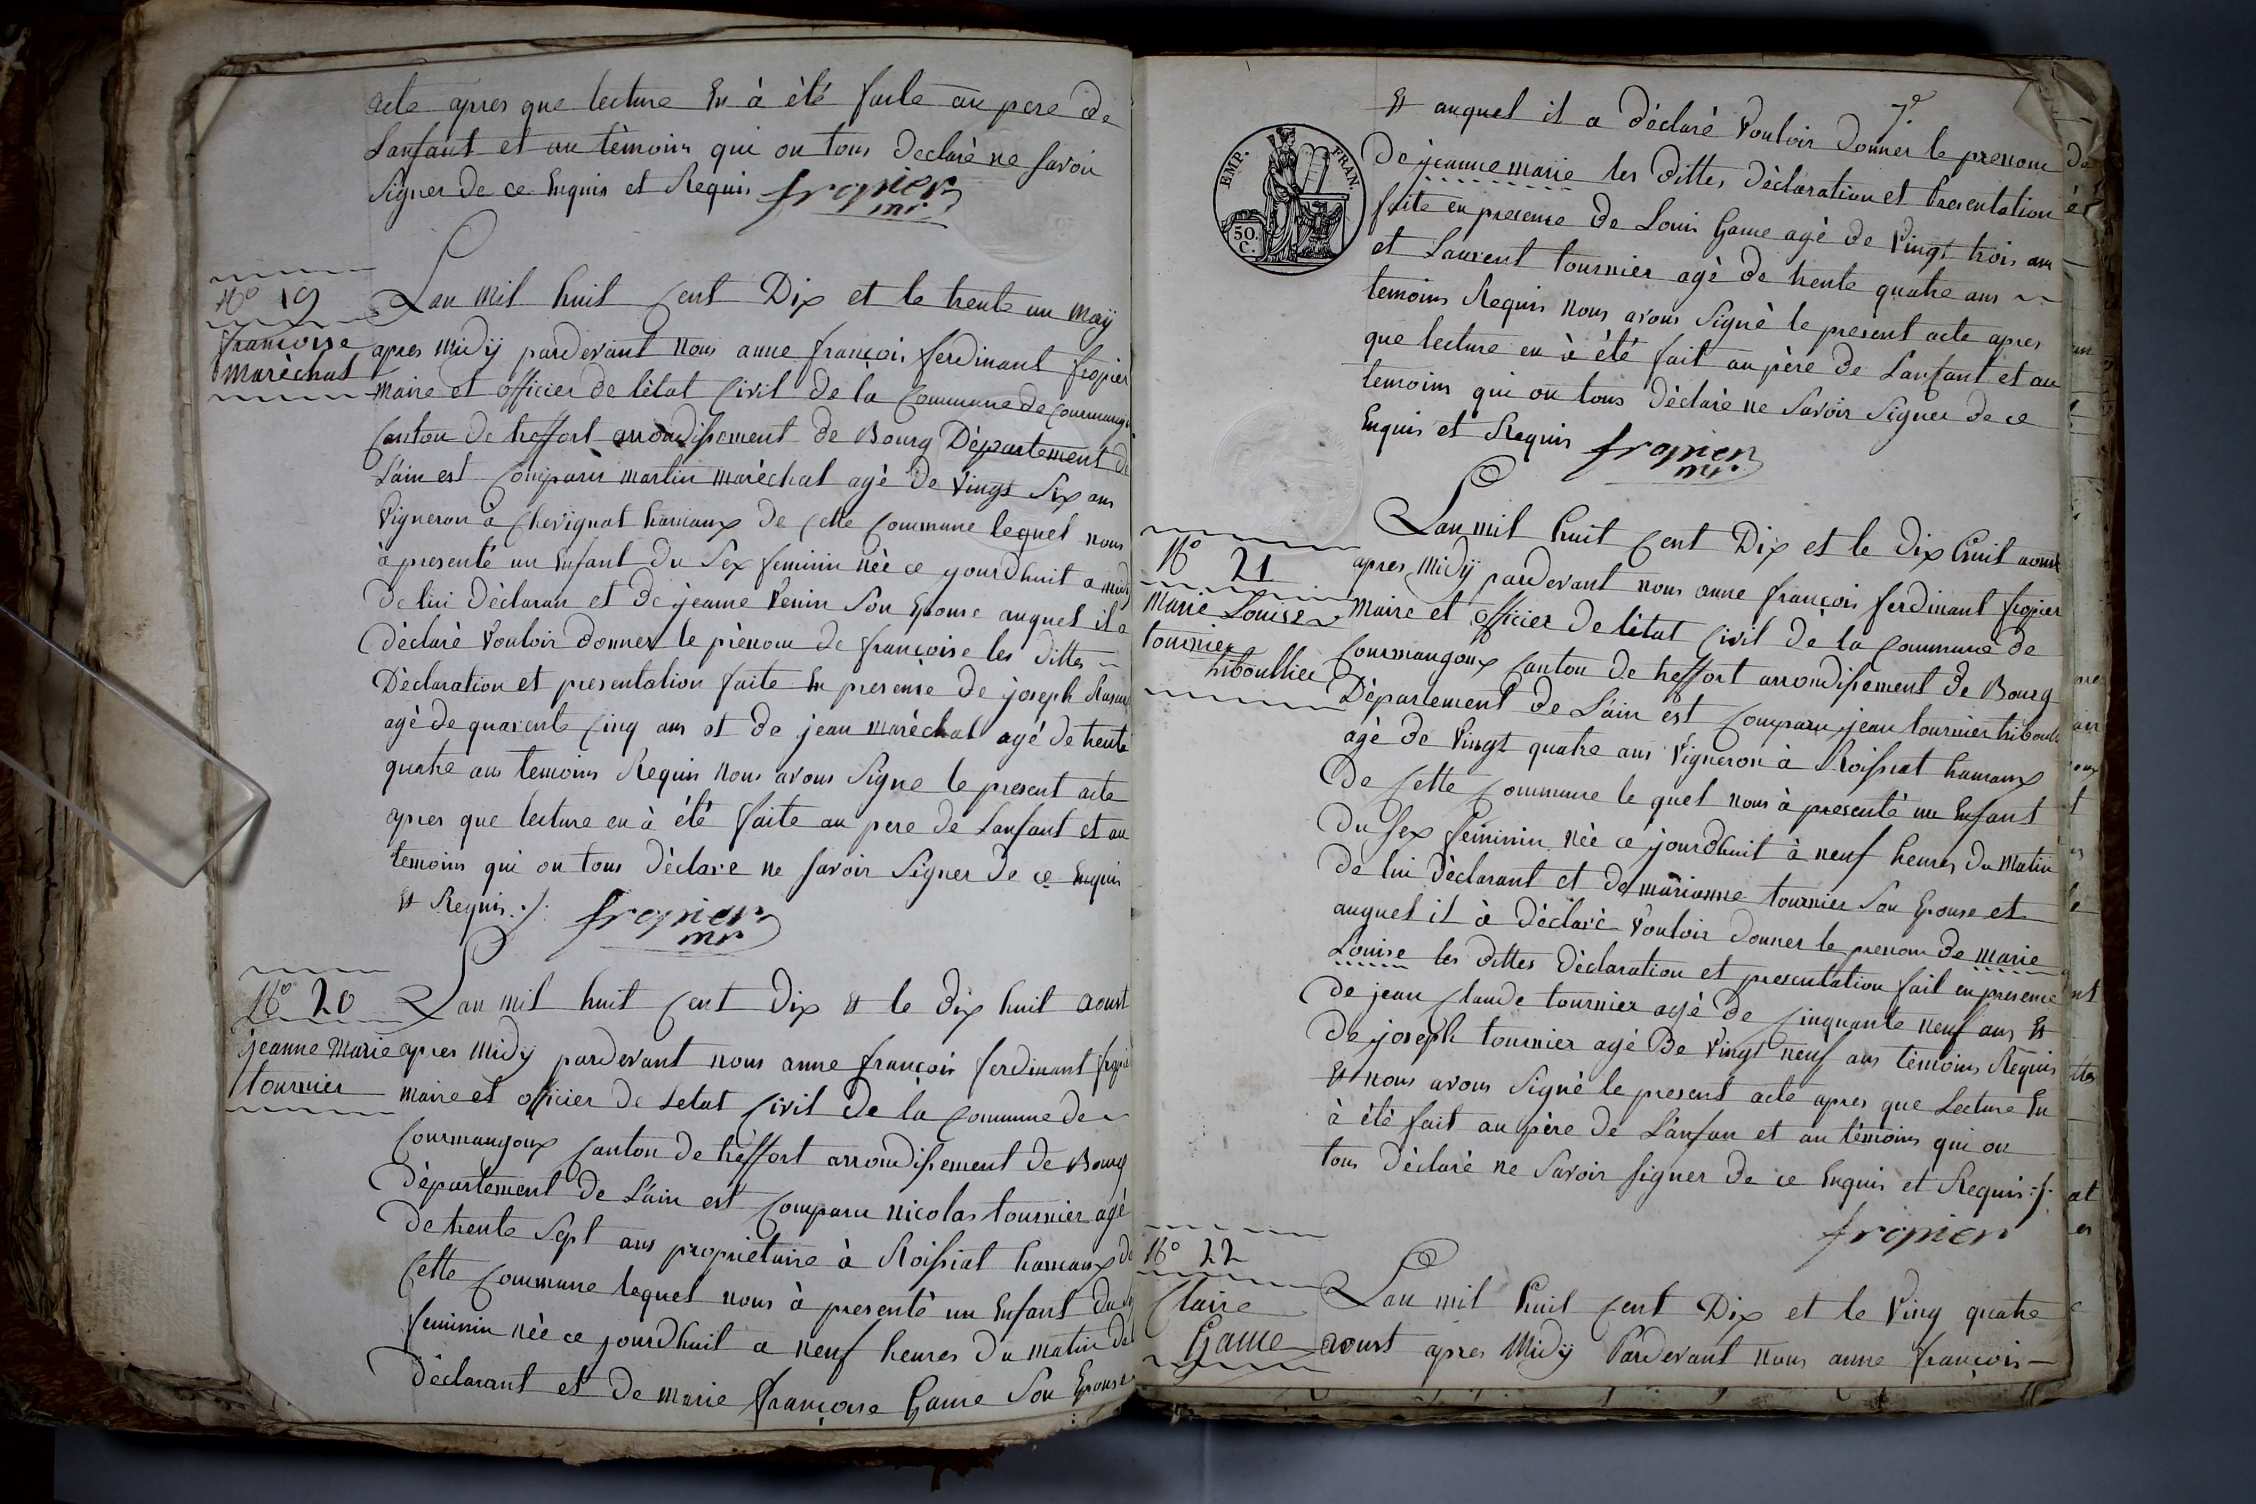 acte apres que lecture En à èté faite au pere de
Lanfant et au tèmoins qui on tous declarè ne savoir
signer de ce Enquis et Requis fropier
mr.
N° 19
francoise
marèchal
Lan mil huit Cent Dix et le trente un may
apres midÿ pardevant nous anne françois ferdinant fropier
maire et officier de lètat Civil de la Commune de Courmangoux
Canton de treffort arrondissement de Bourg Dèpartement de
Lain est Comparù martin marèchal agè de Vingt Six ans
Vigneron à Chevignat hamaux de Cette Commune lequel nous
à presentè un Enfant du Sex feminin nèe ce jourdhuit a midÿ
de lui dèclaran et de jeanne Venin Son Epouse auquel il a
dèclarè Vouloir donner le prènom de françoise les dittes
Dèclaration et presentation faite En presence de joseph
agè de quarente Cinq ans et de jean marèchal agè de trente
quatre ans temoins Requis nous avons Signe le present acte
apres que lecture en à étè faite au pere de Lanfant et au
temoins qui on tous dèclare ne savoir Signer de ce Enquis
Et Requis ./. fropier
mr
N° 20
jeanne Marie
tournier
Lan mil huit Cent Dix Et le Dix huit aoust
apres Midÿ pardevant nous anne françois ferdinant fropier
maire et officier de Letat Civil de la Commune de
Courmangoux Canton de trèffort arrondissement de Bourg
Dèpartement de Lain est Comparu nicolas tournier agè
de trente Sept ans proprietaire à Roissiat hamaux de
Cette Commune lequel nous à presentè un Enfant du
feminin nèe ce jourdhuit a neuf heures du matin de
dèclarant et de marie françoise Game Son Epouse
7e
Et auquel il a dèclarè Vouloir donner le prenom
De jeanne marie les dittes dèclaration et Presentation
faite en presence de Louis Game agè de Vingt trois ans
et Laurent tournier agè de trente quatre ans
temoins Requis nous avons Signè le present acte apres
que lecture en à étè fait au père de Lanfant et au
temoins qui on tous dèclarè ne Savoir Signer de ce
Enquis et Requis fropier
mr.
EMP. FRAN.
50.
C.
N° 21
Marie Louise
tournier
triboullier
Lan mil huit Cent Dix et le Dix huit aoust
apres Midÿ pardevant nous anne françois ferdinant fropier
Maire et officier de lètat Civil de la Commune de
Courmangoux Canton de treffort arrondissement de Bourg
Dèpartement de Lain est Comparu jean tournier
agè de Vingt quatre ans Vigneron à Roissiat hamaux
de Cette Commune le quel nous à presentè un Enfant
du Sex fèminin nèe ce jourdhuit à neuf heures du Matin
de lui dèclarant et de marianne tournier Son Epouse et
auquel il à dèclarè Vouloir donner le prenom de marie
Louise les dittes dèclaration et presentation fait en presence
de jean Claude tournier agè de Cinquante neuf ans Et
de joseph tournier agè de Vingt neuf ans tèmoins Requis
Et nous avons Signè le present acte apres que Lecture En
à étè fait au père de Lanfan et au tèmoins qui on
tous dèclarè ne Savoir signer de ce Enquis et Requis ./.
fropier
N° 22
Claire
Game
Lan mil huit Cent Dix et le Ving quatre
aoust apres Midÿ Pardevant nous anne françois